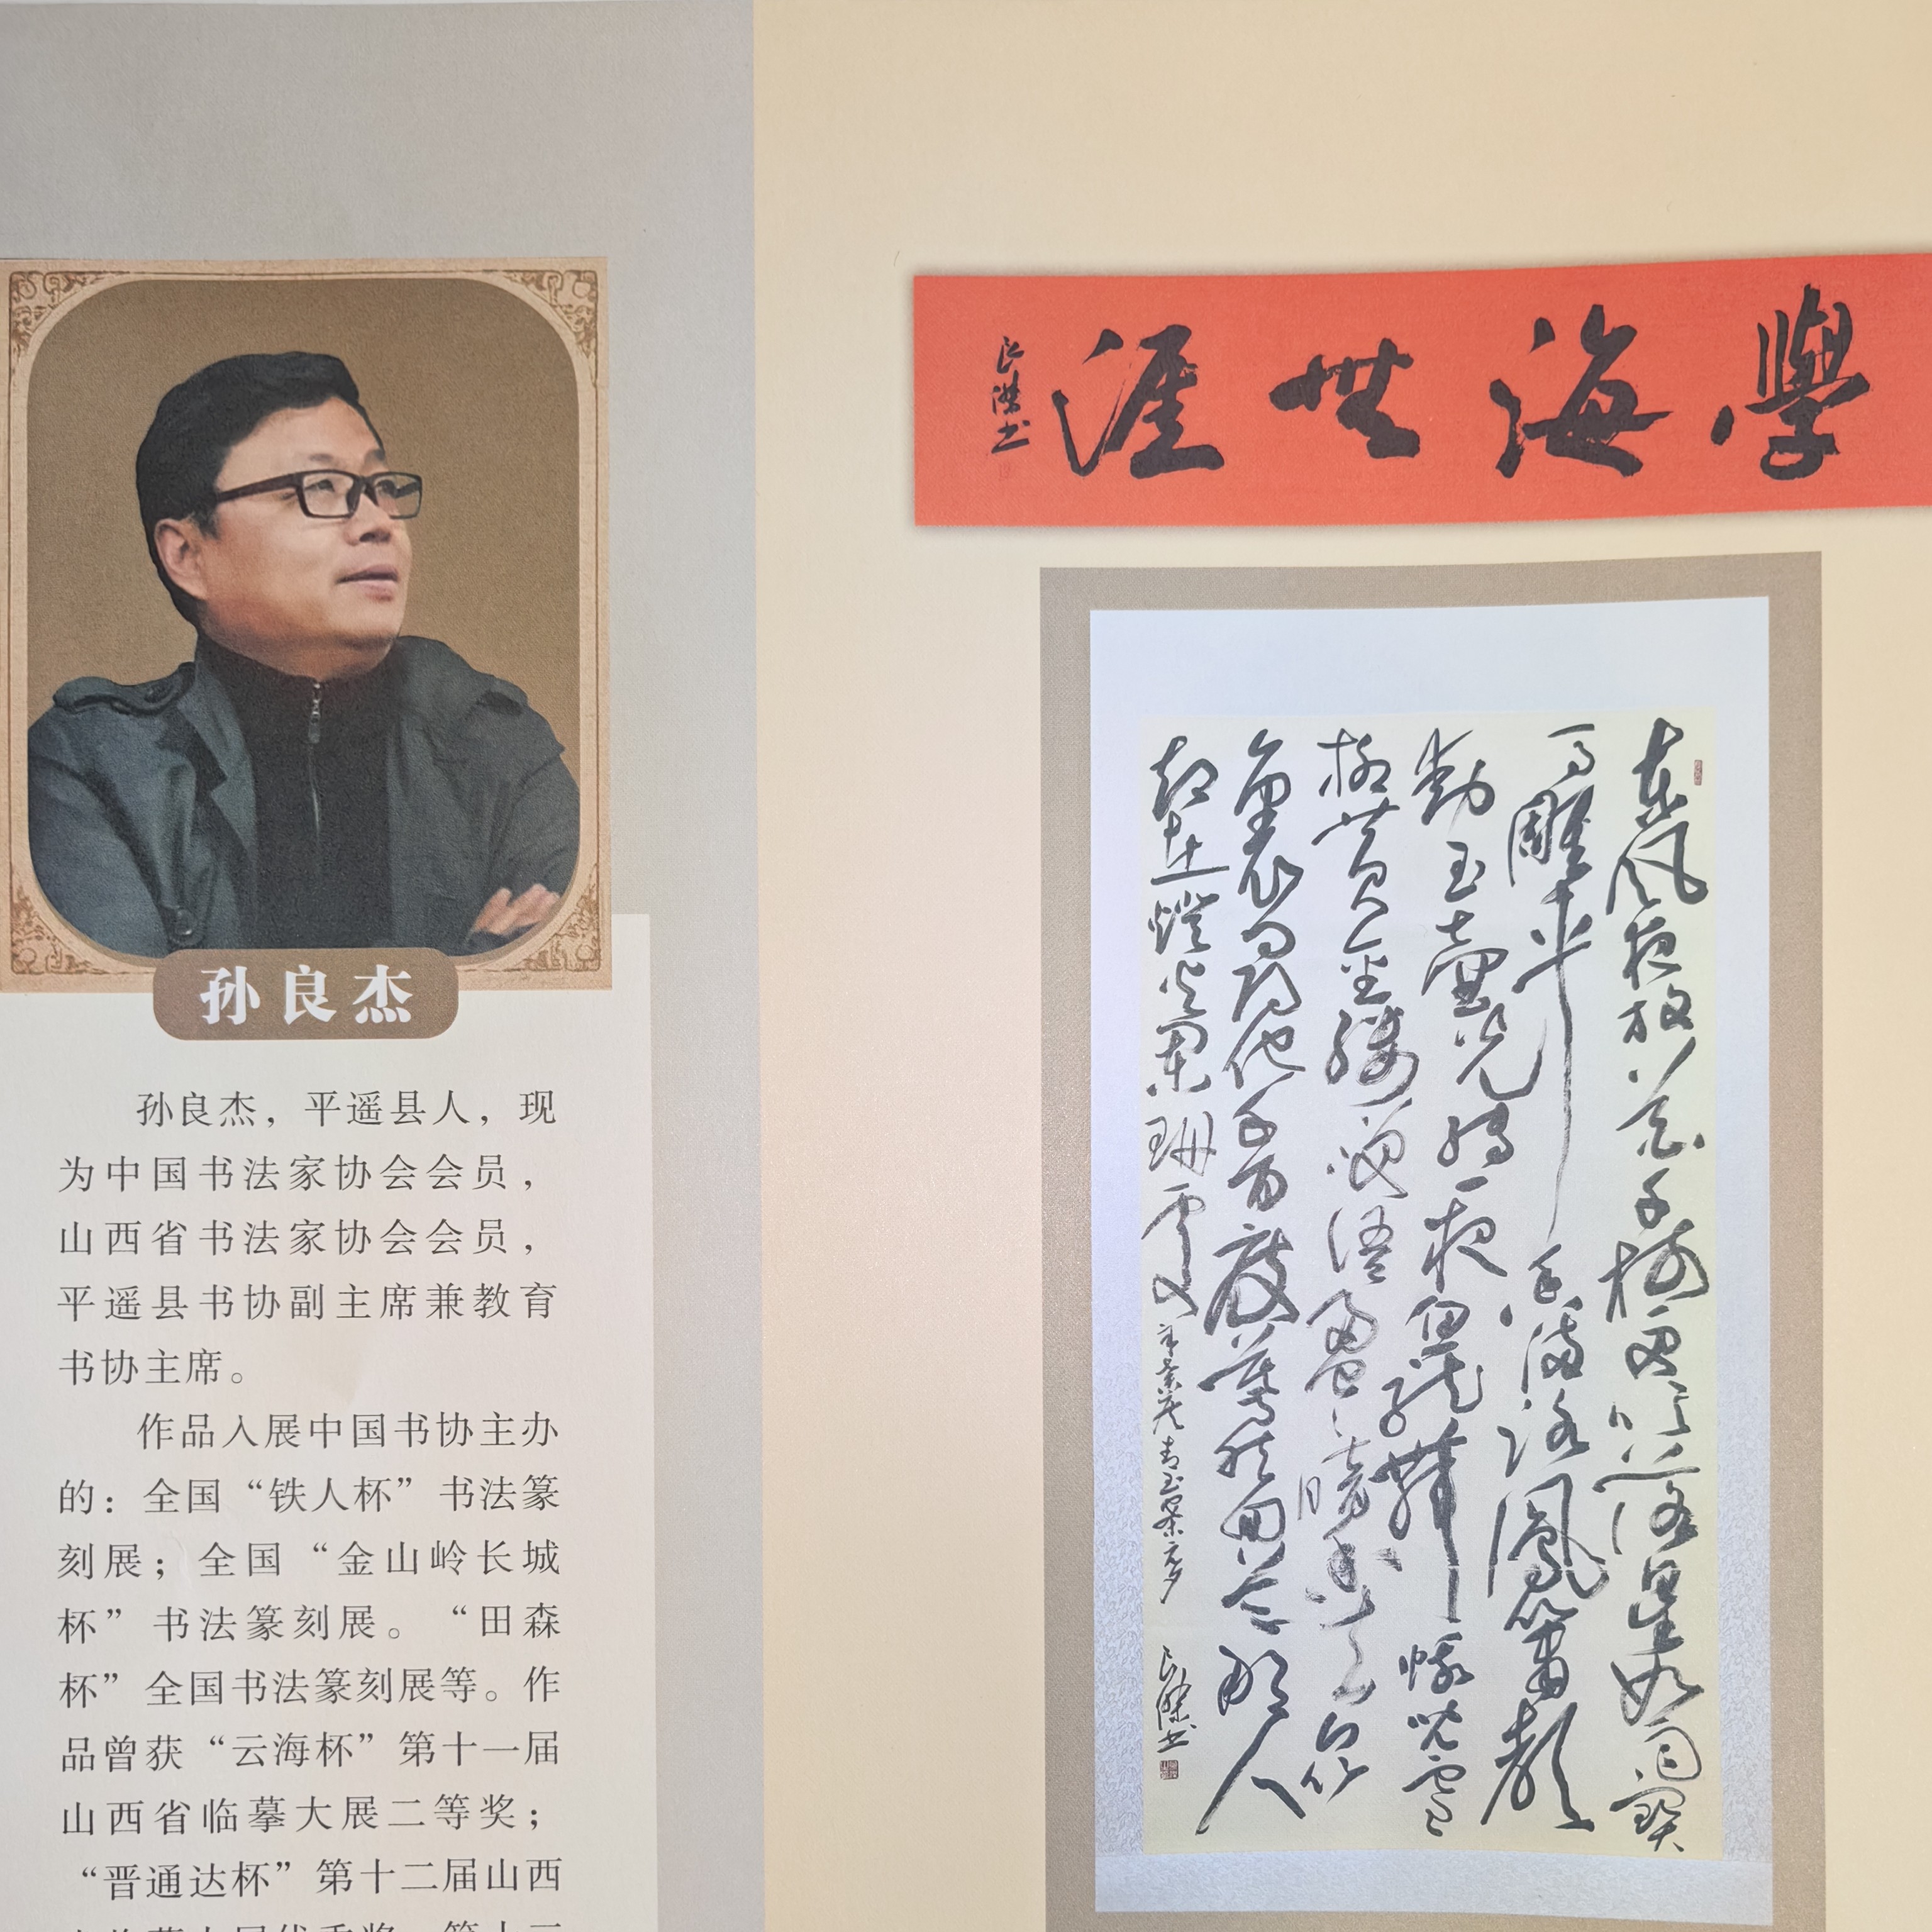 孙良杰
孙良杰，平遥县人，现
为中国书法家协会会员，
山西省书法家协会会员，
平遥县书协副主席兼教育
书协主席。
作品入展中国书协主办
的：全国“铁人杯”书法篆
刻展；全国“金山岭长城
杯”书法篆刻展。“田森
杯”全国书法篆刻展等。作
品曾获“云海杯”第十一届
山西省临摹大展二等奖；
“晋通达杯”第十二届山西
學海無涯
良傑书
東風夜放花千樹更吹落星如雨寳
馬雕車香滿路鳳簫聲
動玉壺光轉一夜魚龍舞蛾兒雪
柳黃金縷笑語盈盈暗香去衆
裏尋他千百度驀然回首那人
却在燈火闌珊處
辛棄疾青玉案元夕
良傑书